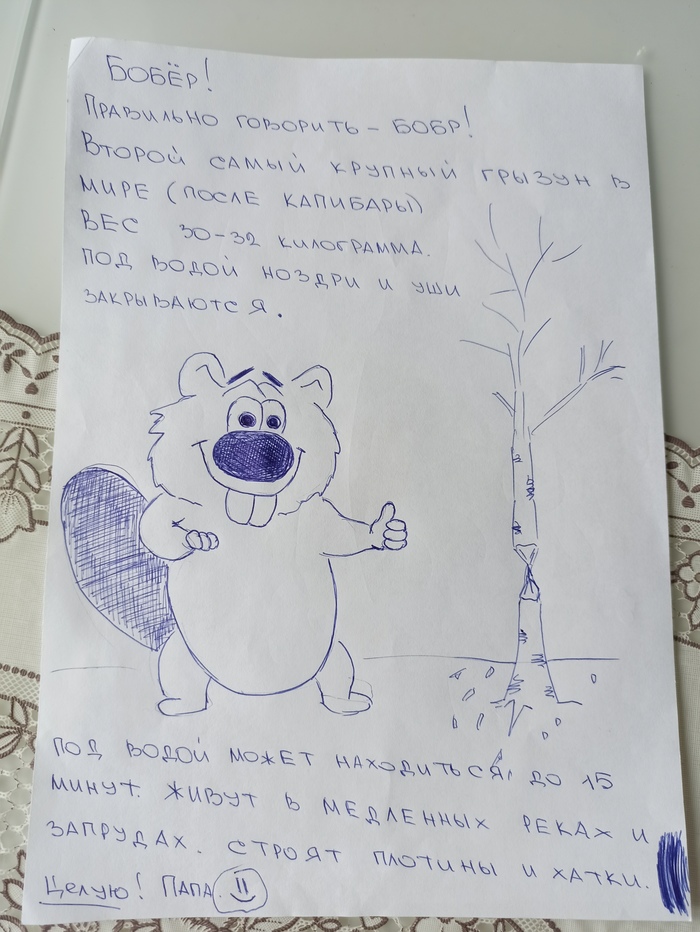 БОБЁР!
ПРАВИЛЬНО ГОВОРИТЬ - БОБР!
ВТОРОЙ САМЫЙ КРУПНЫЙ ГРЫЗУН В
МИРЕ (ПОСЛЕ КАПИБАРЫ)
ВЕС 30-32 КИЛОГРАММА.
ПОД ВОДОЙ НОЗДРИ И УШИ
ЗАКРЫВАЮТСЯ.
ПОД ВОДОЙ МОЖЕТ НАХОДИТЬСЯ ДО 15
МИНУТ. ЖИВУТ В МЕДЛЕННЫХ РЕКАХ И
ЗАПРУДАХ. СТРОЯТ ПЛОТИНЫ И ХАТКИ.
ЦЕЛУЮ! ПАПА.